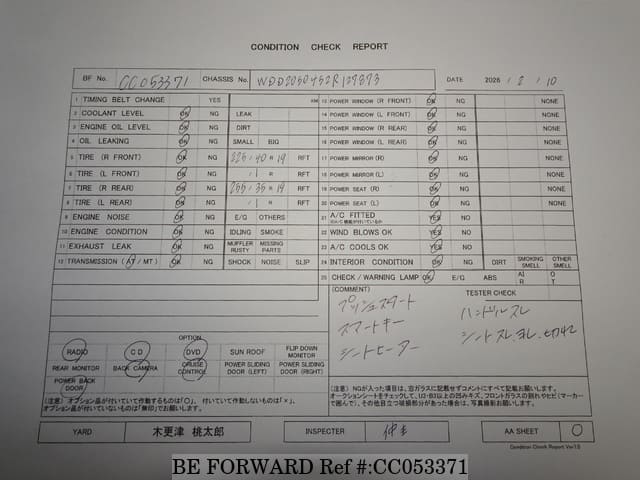 CONDITION CHECK REPORT
BF No. CC053371 CHASSIS No. WDD2050452R127873 DATE 2026 / 2 / 10
1 TIMING BELT CHANGE YES KM
2 COOLANT LEVEL OK NG LEAK
3 ENGINE OIL LEVEL OK NG DIRT
4 OIL LEAKING OK NG SMALL BIG
5 TIRE (R FRONT) OK NG 225 / 40 R 19 RFT
6 TIRE (L FRONT) OK NG / R RFT
7 TIRE (R REAR) OK NG 255 / 35 R 19 RFT
8 TIRE (L REAR) OK NG / R RFT
9 ENGINE NOISE OK NG E/G OTHERS
10 ENGINE CONDITION OK NG IDLING SMOKE
11 EXHAUST LEAK OK NG MUFFLER RUSTY MISSING PARTS
12 TRANSMISSION (AT / MT) OK NG SHOCK NOISE SLIP
13 POWER WINDOW (R FRONT) OK NG NONE
14 POWER WINDOW (L FRONT) OK NG NONE
15 POWER WINDOW (R REAR) OK NG NONE
16 POWER WINDOW (L REAR) OK NG NONE
17 POWER MIRROR (R) OK NG NONE
18 POWER MIRROR (L) OK NG NONE
19 POWER SEAT (R) OK NG NONE
20 POWER SEAT (L) OK NG NONE
21 A/C FITTED YES NO
22 WIND BLOWS OK YES NO
23 A/C COOLS OK YES NO
24 INTERIOR CONDITION OK NG DIRT SMOKING SMELL OTHER SMELL
25 CHECK / WARNING LAMP OK E/G ABS AIR OT
(COMMENT) TESTER CHECK
プッシュスタート
スマートキー
シートヒーター
ハンドルスレ
シートスレ、ヨレ、
OPTION
RADIO CD DVD SUN ROOF FLIP DOWN MONITOR
REAR MONITOR BACK CAMERA CRUISE CONTROL POWER SLIDING DOOR (LEFT) POWER SLIDING DOOR (RIGHT)
POWER BACK DOOR
(注意) オプション品が付いていて作動するものは「○」、付いていて作動しないものは「×」、
オプション品が付いていないものは「無印」でお願いします。
(注意) NGが入った項目は、窓ガラスに記載せずコメントにすべて記載お願いします。
オークションシートをチェックして、U2・B3以上の凹みキズ、フロントガラスの割れやヒビ(マーカー
で囲んで)、その他目立つ破損部分があった場合は、写真撮影お願いします。
YARD 木更津 桃太郎 INSPECTER AA SHEET ○
Condition Check Report Ver7.5
BE FORWARD Ref #:CC053371